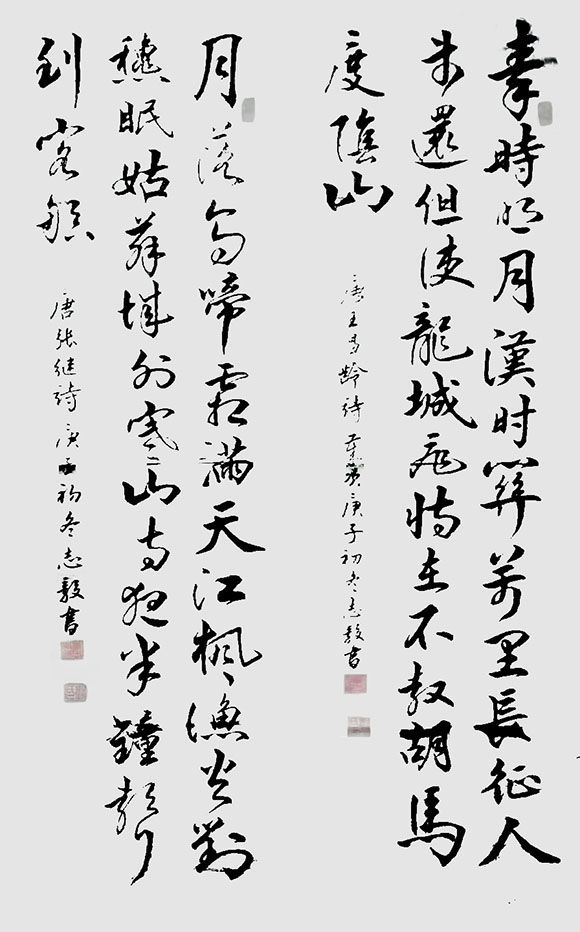 秦時明月漢时關萬里長征人
未還但使龍城飛將在不教胡馬
度陰山
唐王昌齡詩庚子初冬志毅書
月落烏啼霜滿天江楓漁火對
愁眠姑蘇城外寒山寺夜半鐘聲
到客船
唐張继詩庚子初冬志毅書